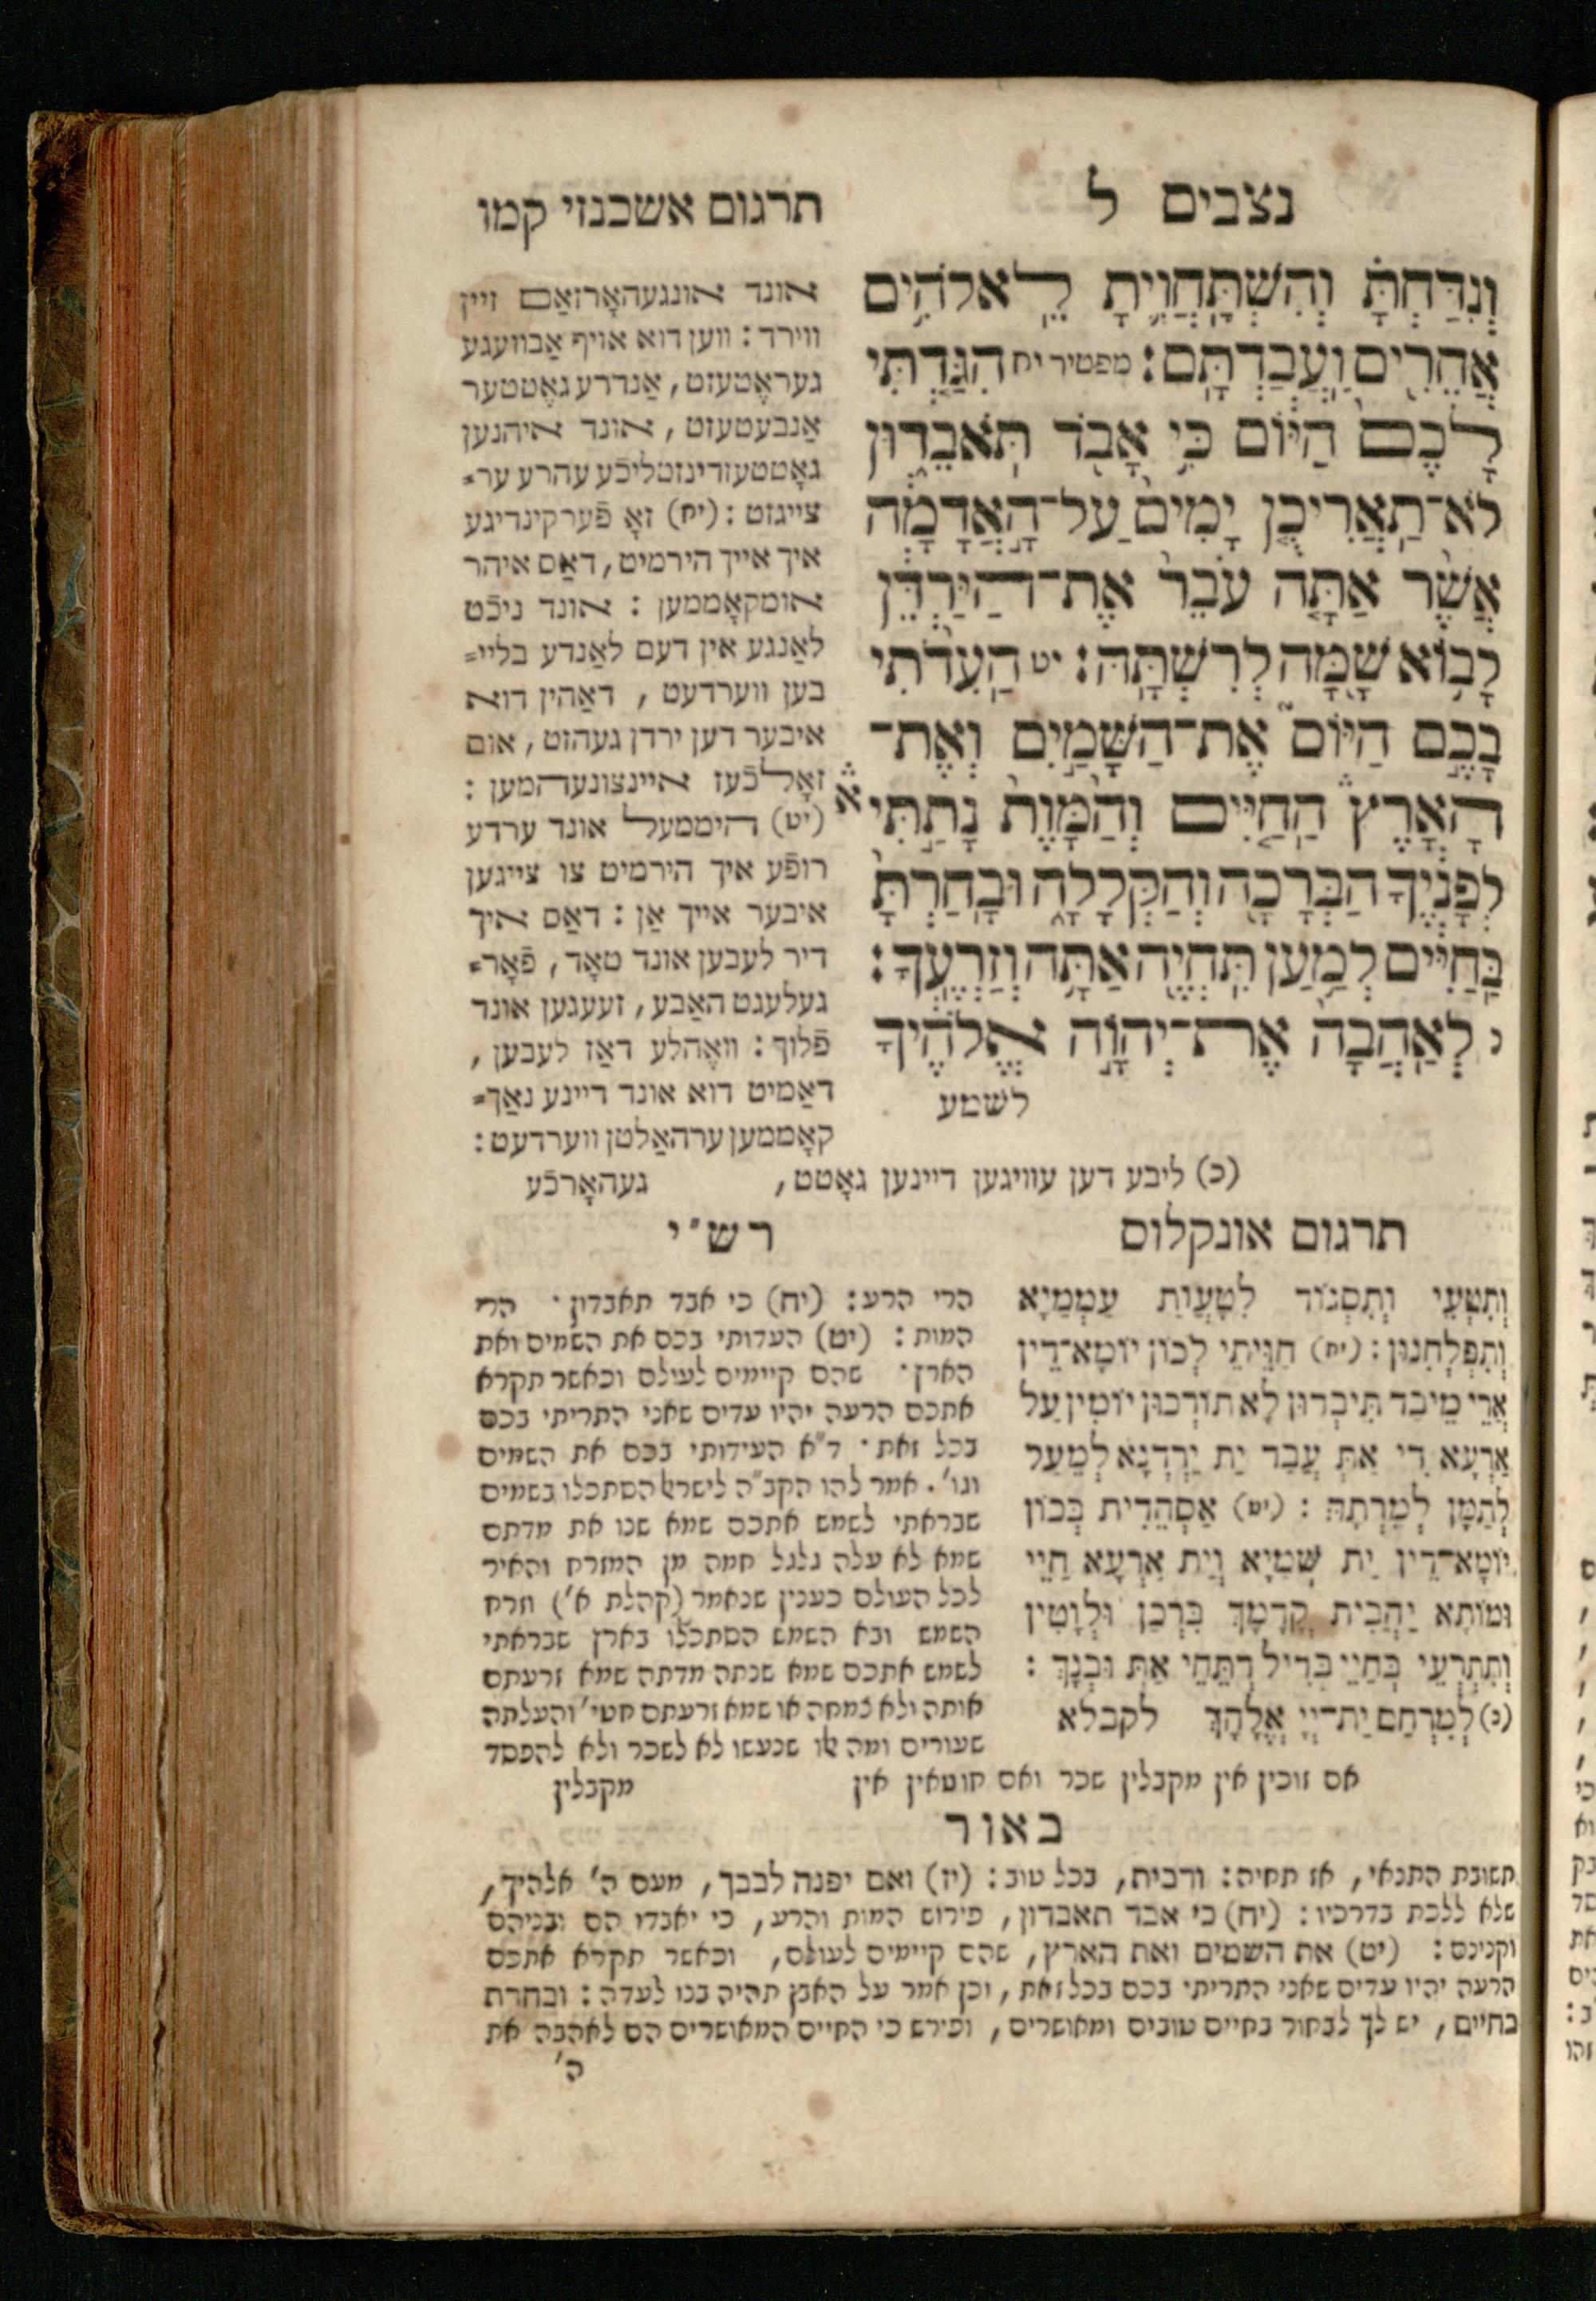 נצבים ל
תרגום אשכנזי קמו
וְנִדַּחְתָּ֗ וְהִשְׁתַּחֲוִ֛יתָ לֵאלֹהִ֥ים
אֲחֵרִ֖ים וַעֲבַדְתָּֽם׃ מפטיר יח הִגַּ֤דְתִּי
לָכֶם֙ הַיּ֔וֹם כִּ֥י אָבֹ֖ד תֹּאבֵד֑וּן
לֹא־תַאֲרִיכֻ֤ן יָמִים֙ עַל־הָ֣אֲדָמָ֔ה
אֲשֶׁ֨ר אַתָּ֤ה עֹבֵר֙ אֶת־הַיַּרְדֵּ֔ן
לָב֥וֹא שָׁ֖מָּה לְרִשְׁתָּֽהּ׃ יט הַעִדֹ֨תִי
בָכֶ֣ם הַיּוֹם֮ אֶת־הַשָּׁמַ֣יִם וְאֶת־
הָאָרֶץ֒ הַחַיִּ֤ים וְהַמָּ֙וֶת֙ נָתַ֣תִּי
לְפָנֶ֔יךָ הַבְּרָכָ֖ה וְהַקְּלָלָ֑ה וּבָֽחַרְתָּ֙
בַּֽחַיִּ֔ים לְמַ֥עַן תִּֽחְיֶ֖ה אַתָּ֥ה וְזַרְעֶֽךָ׃
כ לְאַֽהֲבָה֙ אֶת־יְהוָ֣ה אֱלֹהֶ֔יךָ
לשמע
אונד אונגעהאָרזאַם זיין
ווירד : ווען דוא אויף אַבוועגע
געראָטעזט, אַנדרע גאָטטער
אַנבעטעזט, אונד איהנען
גאָטטעזדינזטליכֿע עהרע ער=
צייגזט : (יח) זאָ פֿערקינדיגע
איך אייך הירמיט, דאַס איהר
אומקאָממען : אונד ניכֿט
לאַנגע אין דעם לאַנדע בליי=
בען ווערדעט, דאַהין דוא
איבער דען ירדן געהזט, אום
זאָלכֿעז איינצונעהמען :
(יט) היממעל אונד ערדע
רופֿע איך הירמיט צו צייגען
איבער אייך אַן : דאַס איך
דיר לעבען אונד טאָד, פֿאָר=
געלעגט האַבע, זעעגען אונד
פֿלוך : וואָהלע דאַז לעבען,
דאַמיט דוא אונד דיינע נאַך=
קאָממען ערהאַלטן ווערדעט :
(כ) ליבע דען עוויגען דיינען גאָטט, געהאָרכֿע
תרגום אונקלוס
וְתִטְעֵי וְתִסְגּוֹד לְטָעֲוַת עַמְמַיָּא
וְתִפְלְחִנּוּן : (יח) חַוֵּיתִי לְכוֹן יוֹמָא־דֵין
אֲרֵי מֵיבַד תֵּיבְדוּן לָא תוֹרְכוּן יוֹמִין עַל
אַרְעָא דִי אַתְּ עֲבַר יַת יַרְדְּנָא לְמֵעַל
לְתַמָּן לְמֵרְתַהּ : (יט) אַסְהֵדִית בְּכוֹן
יוֹמָא־דֵין יַת שְׁמַיָּא וְיַת אַרְעָא חַיֵּי
וּמוֹתָא יַהֲבִית קֳדָמָךְ בִּרְכָן וּלְוָטִין
וְתִתְרְעֵי בְּחַיֵּי בְּדִיל דְתֵיחֵי אַתְּ וּבְנָךְ :
(כ) לְמִרְחַם יַת־יְיָ אֱלָהָךְ לקבלא
רש״י
הרי הרע : (יח) כי אבד תאבדון · הרי
המות : (יט) העדותי בכם את השמים ואת
הארץ · שהם קיימים לעולם וכאשר תקרא
אתכם הרעה יהיו עדים שאני התריתי בכם
בכל זאת · ד״א העידותי בכם את השמים
וגו'. אמר להו הקב״ה לישראל הסתכלו בשמים
שבראתי לשמש אתכם שמא שנו את מדתם
שמא לא עלה גלגל חמה מן המזרח והאיר
לכל העולם כענין שנאמר (קהלת א') וזרח
השמש ובא השמש הסתכלו בארץ שבראתי
לשמש אתכם שמא שנתה מדתה שמא זרעתם
אותה ולא צמחה או שמא זרעתם חטי' והעלתה
שעורים ומה אלו שנעשו לא לשכר ולא להפסד
אם זוכין אין מקבלין שכר ואם חוטאין אין מקבלין
באור
תשובת התנאי, אז תחיה : ורבית, בכל טוב : (יז) ואם יפנה לבבך, מעם ה' אלהיך,
שלא ללכת בדרכיו : (יח) כי אבד תאבדון, פירוש המות והרע, כי יאבדו הם ובניהם
וקנינם : (יט) את השמים ואת הארץ, שהם קיימים לעולם, וכאשר תקרא אתכם
הרעה יהיו עדים שאני התריתי בכם בכל זאת, וכן אמר על האבן תהיה בנו לעדה : ובחרת
בחיים, יש לך לבחור בחיים טובים ומאושרים, ופירש כי החיים המאושרים הם לאהבה את
ה'